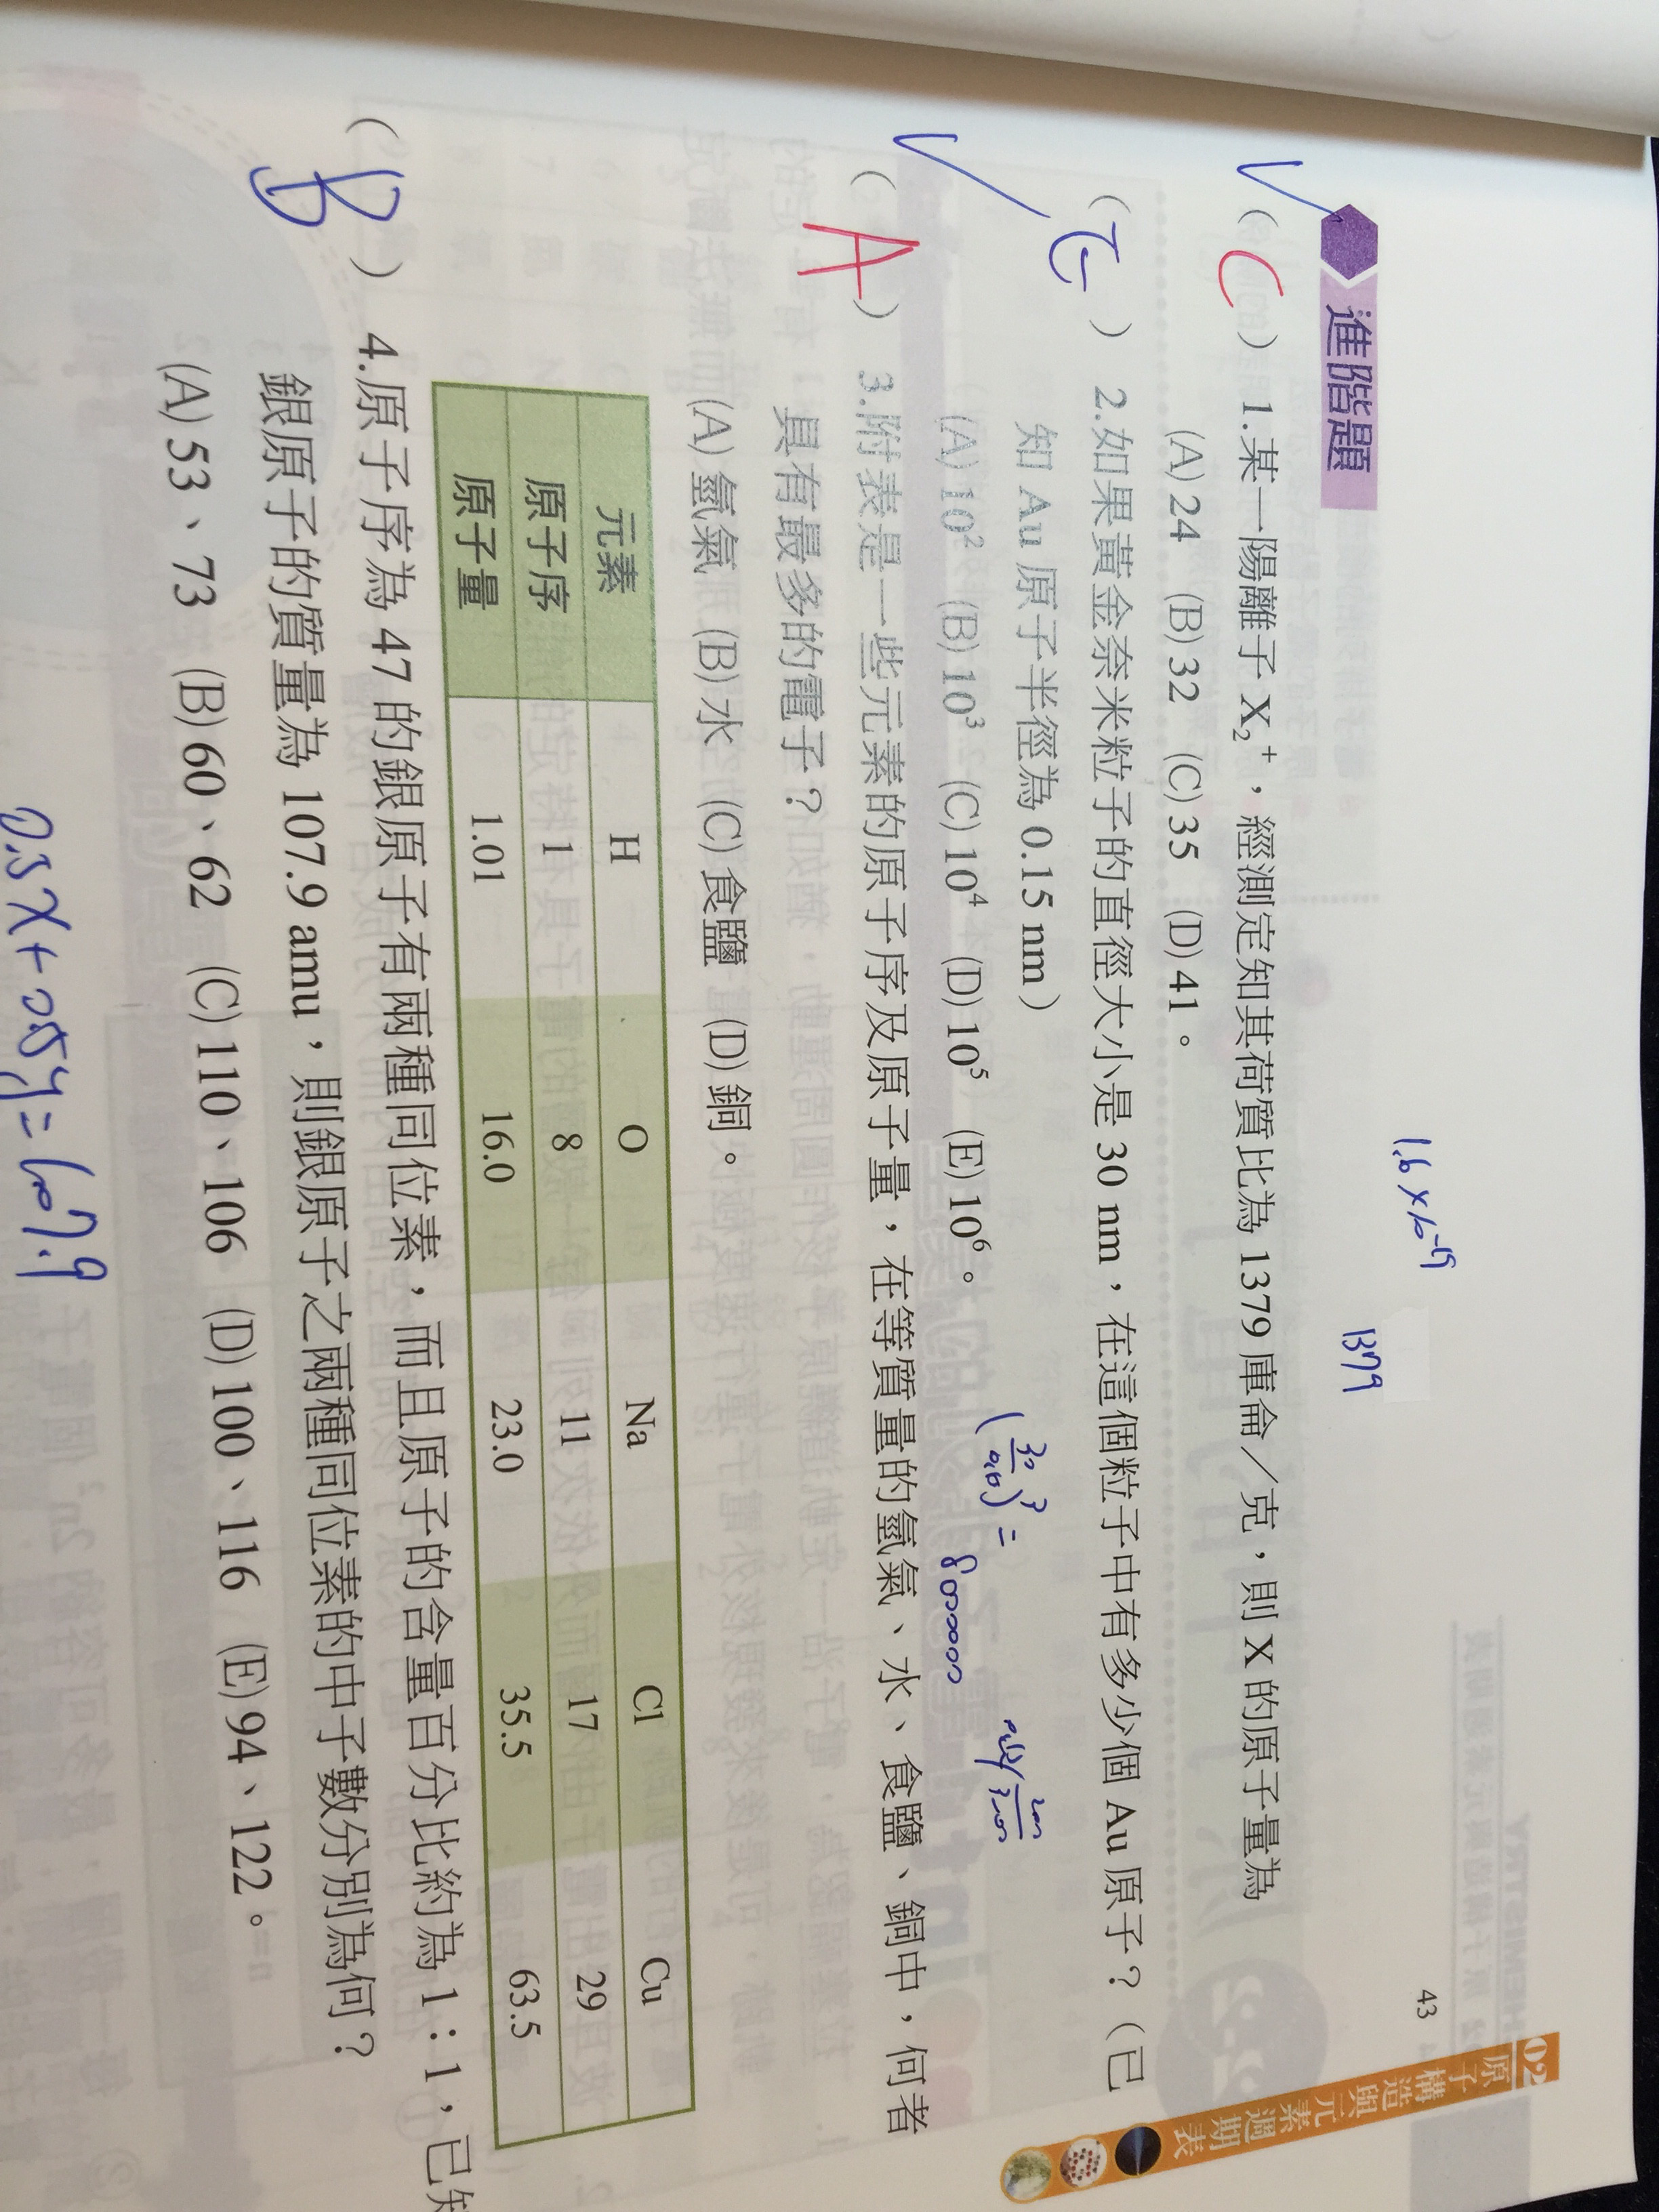 43
02
原子構造與元素週期表
進階題
1.6 × 10⁻¹⁹
1379
( C ) 1.某一陽離子 X₂⁺,經測定知其荷質比為 1379 庫侖/克,則 X 的原子量為
(A) 24 (B) 32 (C) 35 (D) 41。
( E ) 2.如果黃金奈米粒子的直徑大小是 30 nm,在這個粒子中有多少個 Au 原子?(已
知 Au 原子半徑為 0.15 nm)
(A) 10² (B) 10³ (C) 10⁴ (D) 10⁵ (E) 10⁶。
( A ) 3.附表是一些元素的原子序及原子量,在等質量的氫氣、水、食鹽、銅中,何者
具有最多的電子?
(A) 氫氣 (B) 水 (C) 食鹽 (D) 銅。
元素 H O Na Cl Cu
原子序 1 8 11 17 29
原子量 1.01 16.0 23.0 35.5 63.5
( B ) 4.原子序為 47 的銀原子有兩種同位素,而且原子的含量百分比約為 1:1,已知
銀原子的質量為 107.9 amu,則銀原子之兩種同位素的中子數分別為何?
(A) 53、73 (B) 60、62 (C) 110、106 (D) 100、116 (E) 94、122。
0.5x + 0.5y = 107.9